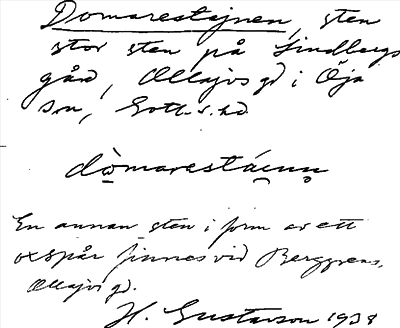 Domarestajnen, sten
stor sten på Lindbergs
gård, Ollajvs gd i Öja
sn, Gotl. s. hd
dò̱marestáɩnn̥
En annan sten i form av ett
oxspår finnes vid Berggrens,
Ollajvs gd.
H. Gustavson 1938